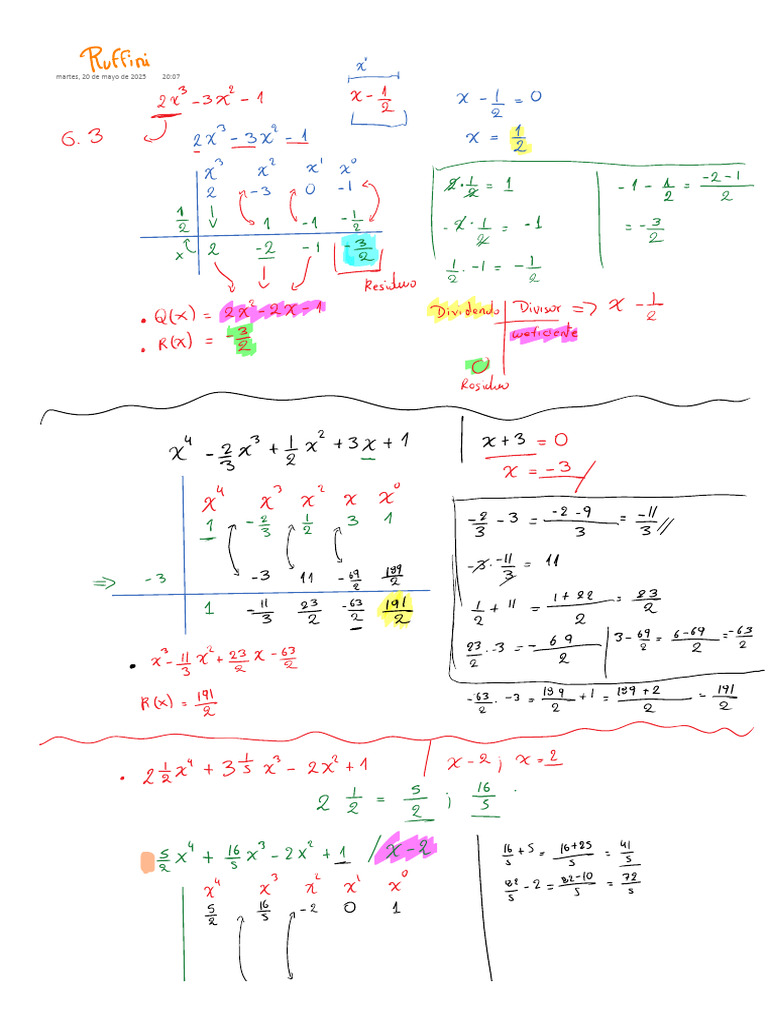 Ruffini
martes, 20 de mayo de 2025 20:07
2x³ - 3x² - 1
x¹
x - 1/2
x - 1/2 = 0
6.3
2x³ - 3x² - 1
x = 1/2
x³ x² x¹ x⁰
2 -3 0 -1
1/2 ↓ 1 -1 -1/2
x 2 -2 -1 -3/2
Residuo
2 · 1/2 = 1
-2 · 1/2 = -1
1/2 · -1 = -1/2
-1 - 1/2 = (-2-1)/2
= -3/2
• Q(x) = 2x² - 2x - 1
• R(x) = -3/2
Dividendo | Divisor ⇒ x - 1/2
coeficiente
0
Residuo
x⁴ - 2/3 x³ + 1/2 x² + 3x + 1 | x + 3 = 0
x = -3
x⁴ x³ x² x x⁰
1 -2/3 1/2 3 1
⇒ -3 -3 11 -69/2 189/2
1 -11/3 23/2 -63/2 191/2
-2/3 - 3 = (-2-9)/3 = -11/3 //
-3 · -11/3 = 11
1/2 + 11 = (1+22)/2 = 23/2
23/2 · -3 = -69/2 | 3 - 69/2 = (6-69)/2 = -63/2
-63/2 · -3 = 189/2 + 1 = (189+2)/2 = 191/2
• x³ - 11/3 x² + 23/2 x - 63/2
R(x) = 191/2
• 2 1/2 x⁴ + 3 1/5 x³ - 2x² + 1 / x - 2 ; x = 2
2 1/2 = 5/2 ; 16/5 .
5/2 x⁴ + 16/5 x³ - 2x² + 1 / x - 2
x⁴ x³ x² x¹ x⁰
5/2 16/5 -2 0 1
16/5 + 5 = (16+25)/5 = 41/5
82/5 - 2 = (82-10)/5 = 72/5